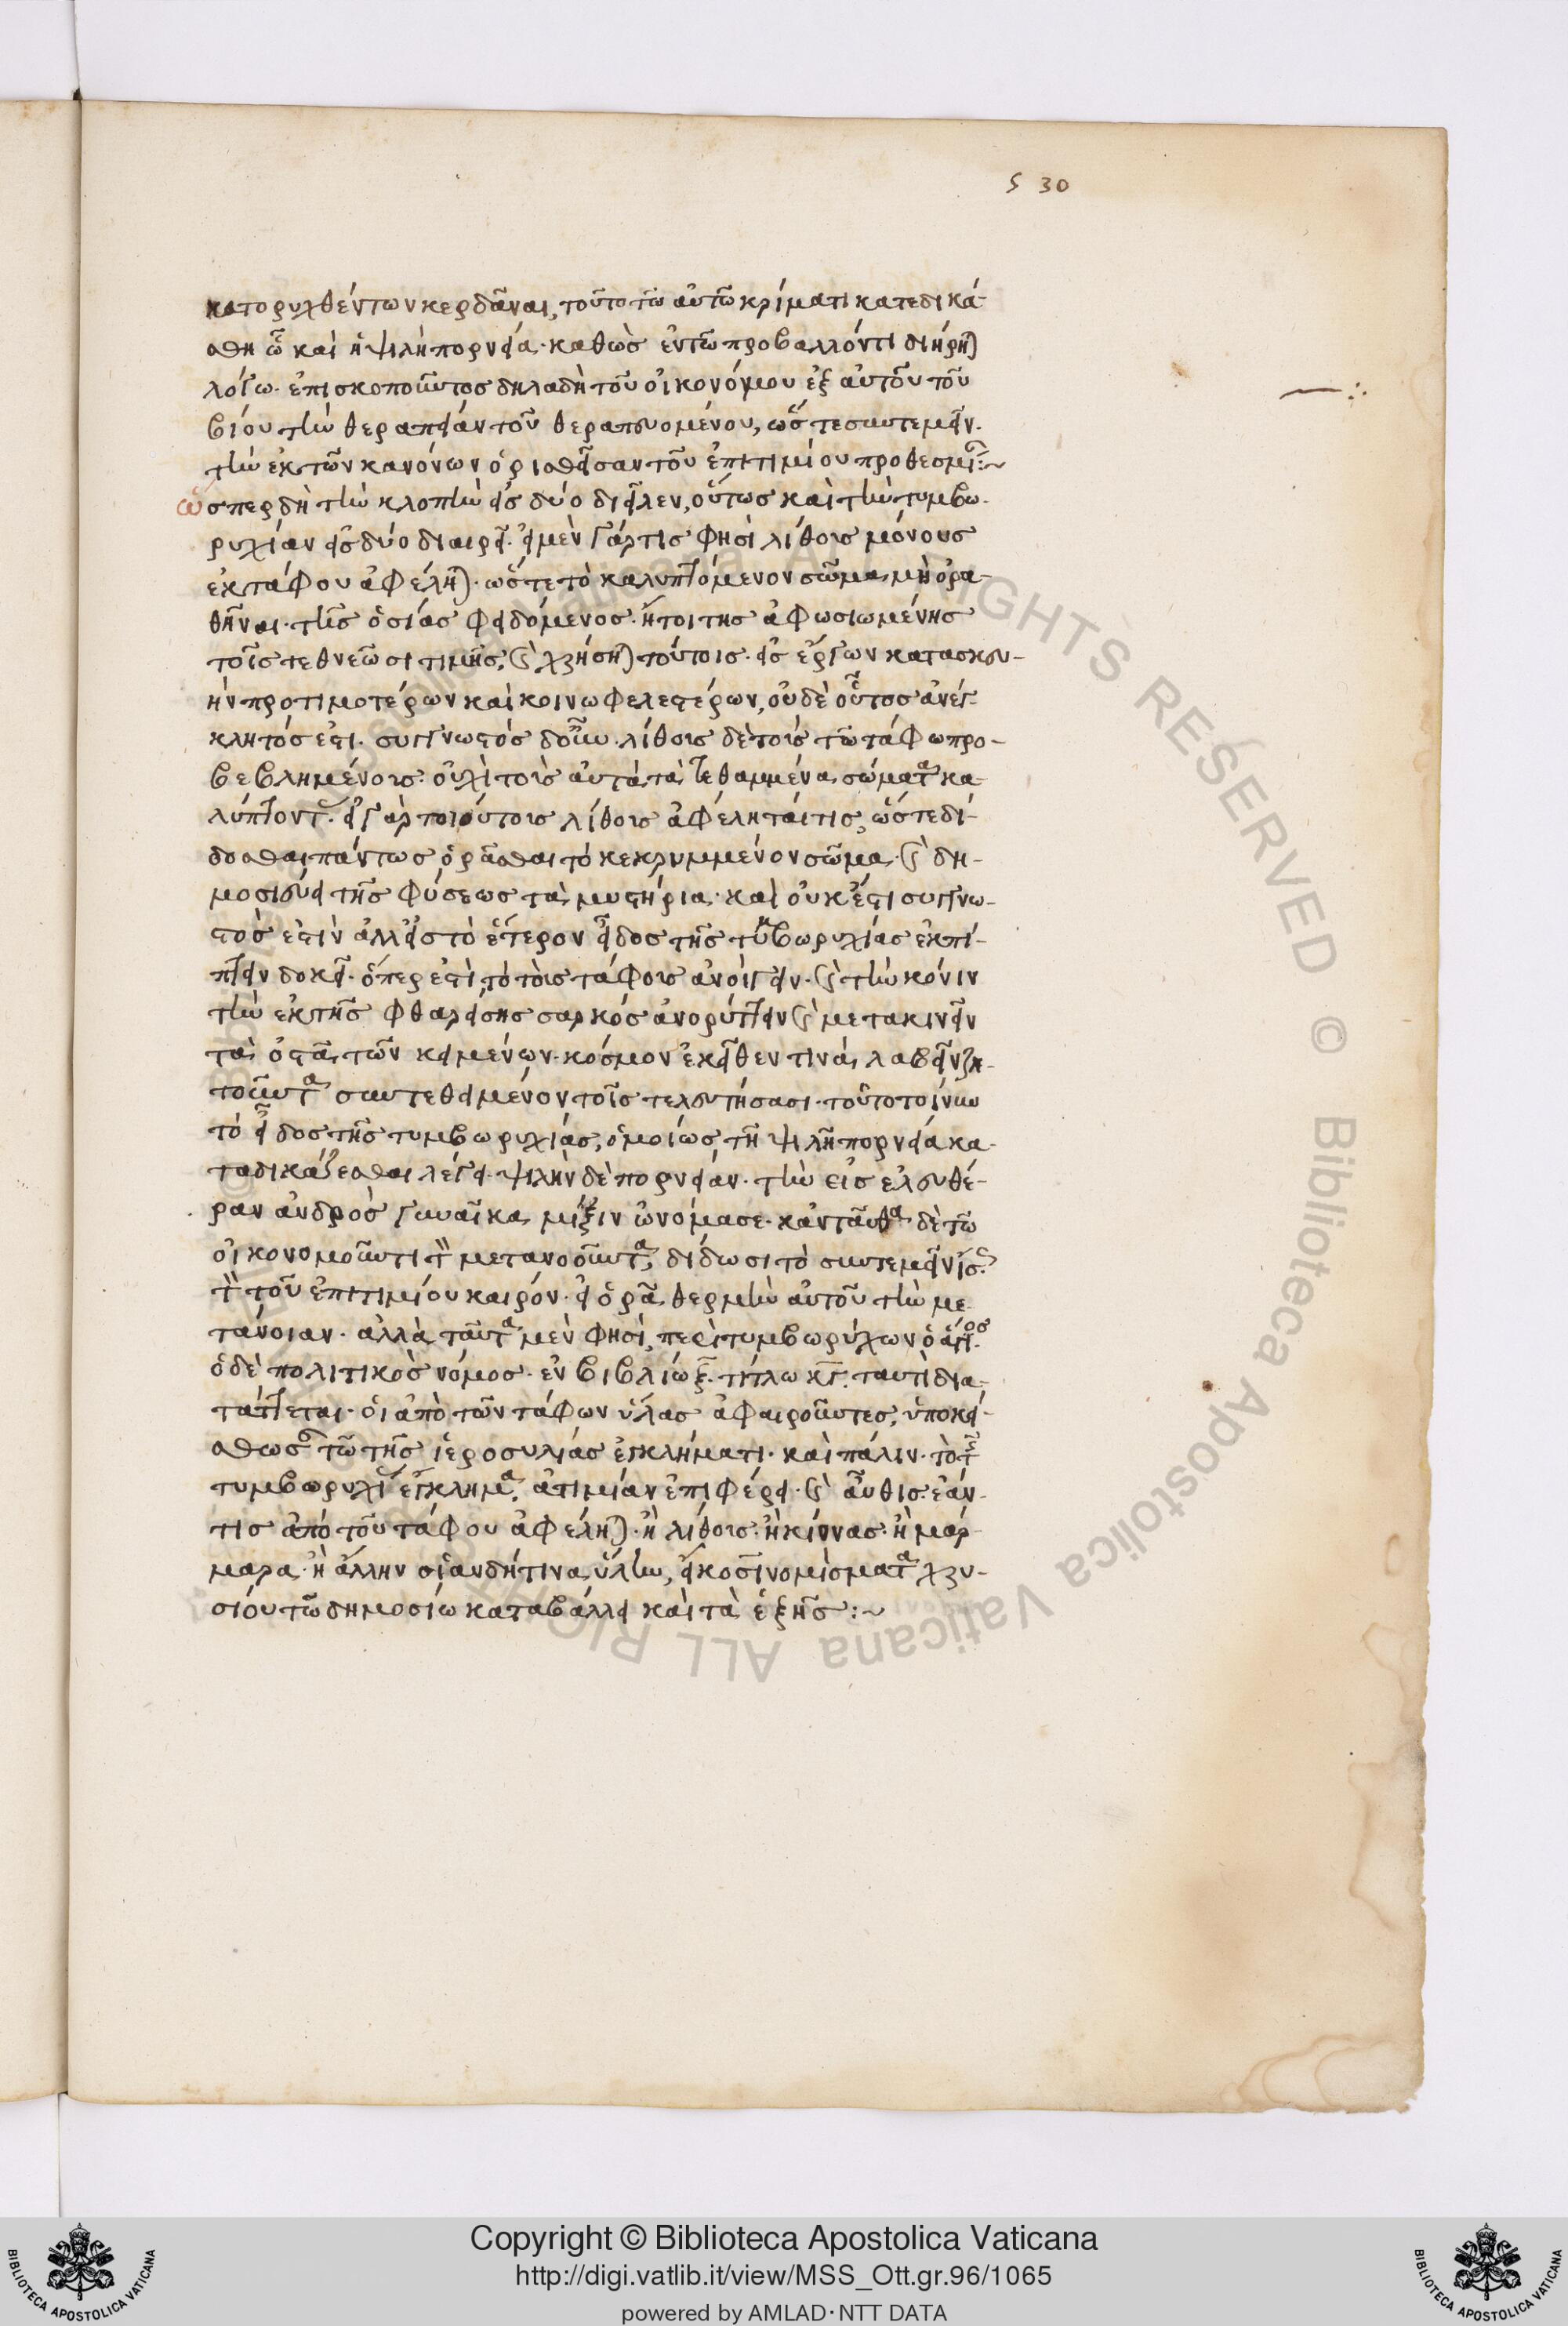 530
κατορυχθέντων κερδᾶναι, τοῦτο τῶ αὐτῶ κρίματι κατεδικά-
σθη ᾧ καὶ ἡ ψιλὴ πορνεία· καθὼς ἐν τῶ προβαλλόντι διήρηται
λόγω· ἐπισκοποῦντος δηλαδὴ τοῦ οἰκονόμου ἐξ αὐτοῦ τοῦ
βίου τὴν θεραπείαν τοῦ θεραπευομένου, ὥστε συντεμεῖν·
τὴν ἐκ τῶν κανόνων ὁρισθεῖσαν τοῦ ἐπιτιμίου προθεσμίαν:~
ὥσπερ δὴ τὴν κλοπὴν εἰς δύο διεῖλεν, οὕτως καὶ τὴν τυμβω-
ρυχίαν εἰς δύο διαιρεῖ· εἰ μὲν γάρ τις φησὶ λίθους μόνους
ἐκ τάφου ἀφέληται· ὥστε τὸ καλυπτόμενον σῶμα μὴ ὁρα-
θῆναι· τῆς ὁσίας φειδόμενος· ἤτοι της ἀφωσιωμένης
τοῖς τεθνεῶσι τιμῆς, καὶ χρήσηται τούτοις· εἰς ἔργων κατασκευ-
ὴν προτιμοτέρων καὶ κοινωφελεστέρων, οὐδὲ οὗτος ἀνέγ-
κλητός ἐστι· συγγνωστὸς δ' οὖν· λίθοις δὲ τοῖς τῶ τάφω προ-
βεβλημένοις· οὐχὶ τοῖς αὐτὰ τὰ τεθαμμένα σώματα κα-
λύπτουσιν· εἰ γὰρ τοιούτους λίθους ἀφέληταί τις, ὥστε δί-
δοσθαι πάντως ὁρᾶσθαι τὸ κεκρυμμένον σῶμα· καὶ δη-
μοσιεύει τῆς φύσεως τὰ μυστήρια· καὶ οὐκέτι συγγνω-
στὸς ἐστὶν ἀλλ' εἰς τὸ ἕτερον εἶδος τῆς τυμβωρυχίας ἐκπί-
πτειν δοκεῖ· ὅπερ ἐστὶ, τὸ τοὺς τάφους ἀνοίγειν· καὶ τὴν κόνιν
τὴν ἐκ τῆς φθαρείσης σαρκὸς ἀνορύττειν καὶ μετακινεῖν
τὰ ὀστᾶ τῶν κειμένων· κόσμον ἐκεῖθεν τινὰ λαβεῖν ζη-
τοῦντα συντεθειμένον τοῖς τελευτήσασι· τοῦτο τοίνυν
τὸ εἶδος τῆς τυμβωρυχίας, ὁμοίως τῆ ψιλῆ πορνεία κα-
ταδικάζεσθαι λέγει· ψιλὴν δὲ πορνείαν· τὴν εἰς ἐλευθέ-
ραν ἀνδρὸς γυναῖκα μίξιν ὠνόμασε· κἀνταῦθα δὲ τῶ
οἰκονομοῦντι τὸν μετανοοῦντα, δίδωσι τὸ συντεμεῖν ἴσως
τὸν τοῦ ἐπιτιμίου καιρόν· εἰ ὁρᾶ θερμὴν αὐτοῦ τὴν με-
τάνοιαν· ἀλλὰ ταῦτα μὲν φησὶ, περὶ τυμβωρύχων ὁ ἅγιος·
ὁ δὲ πολιτικὸς νόμος· ἐν βιβλίω ξ̄· τίτλω κ̄γ̄· ταυτὶ δια-
τάττεται· οἱ ἀπὸ τῶν τάφων ὕλας ἀφαιροῦντες, ὑποκεί-
σθωσαν τῶ τῆς ἱεροσυλίας ἐγκλήματι· καὶ πάλιν· τὸ τῆς
τυμβωρυχίας ἔγκλημα, ἀτιμίαν ἐπιφέρει· καὶ αὖθις· ἐάν
τις ἀπὸ τοῦ τάφου ἀφέληται· ἢ λίθους· ἢ κίονας· ἢ μάρ-
μαρα· ἢ ἄλλην οἱανδήτινα ὕλην, εἴκοσι νομίσματα χρυ-
σίου τῶ δημοσίω καταβάλλει καὶ τὰ ἑξῆς:~
Copyright © Biblioteca Apostolica Vaticana
http://digi.vatlib.it/view/MSS_Ott.gr.96/1065
powered by AMLAD·NTT DATA